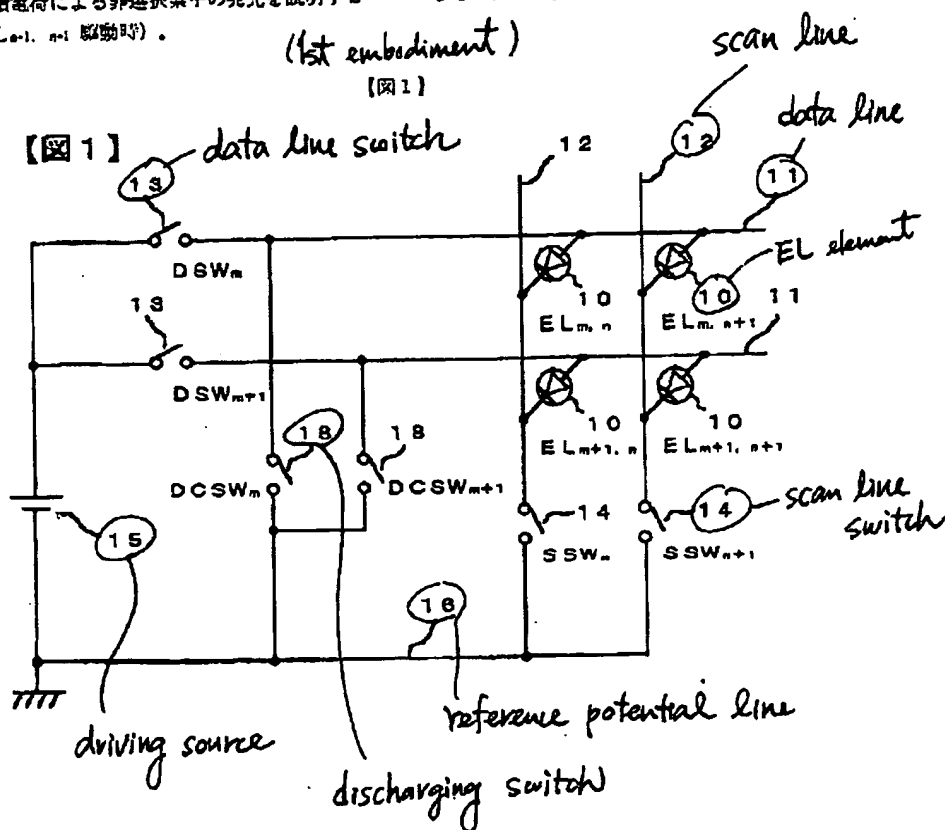 積電荷による非選択素子の発光を説明する
駆動時）。
(1st embodiment)
【図1】
scan line
【図1】
data line switch
data line
12
12
13
11
EL element
DSWm
10
10
11
ELm, n
ELm, n+1
13
DSWm+1
10
10
ELm+1, n
ELm+1, n+1
18
18
DCSWm
DCSWm+1
14
14
scan line
switch
15
SSWn
SSWn+1
16
reference potential line
driving source
discharging switch